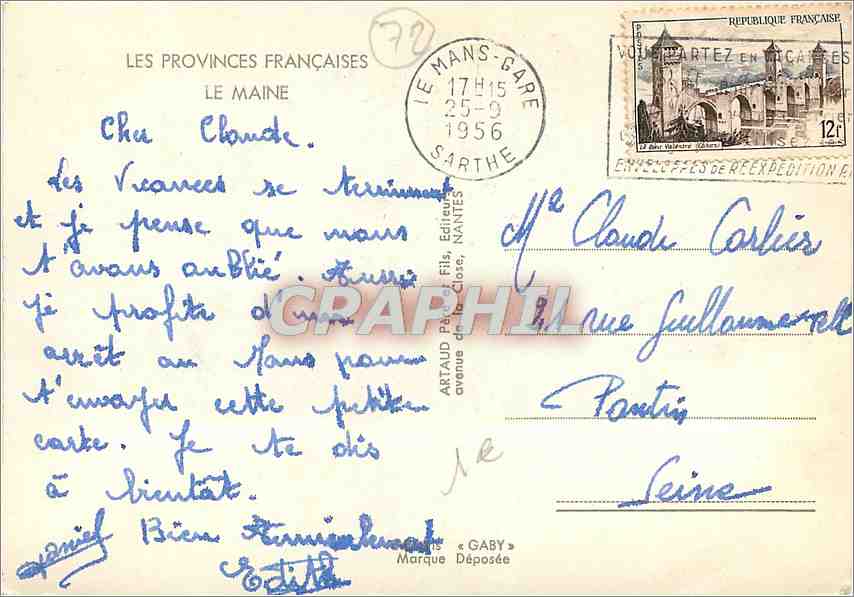 LES PROVINCES FRANÇAISES
LE MAINE
72
LE MANS-GARE
17H15
25-9
1956
SARTHE
REPUBLIQUE FRANÇAISE
POSTES
12f
Le Pont Valentré (Cahors)
VOUS PARTEZ EN VACANCES
ENVELOPPES DE RÉEXPÉDITION
Cher Claude.
Les Vacances se terminent
et je pense que nous
t'avons oublié. Aussi
je profite d'un
arrêt au Mans pour
t'envoyer cette petite
carte. Je te dis
à bientôt.
Bien Amicalement
Daniel
Edith
ARTAUD Père et Fils, Éditeurs
avenue de la Close, NANTES
CPAPHIL
Mr Claude Carlier
21 rue Guillaume-Tell
Pantin
Seine
1€
«GABY»
Marque Déposée